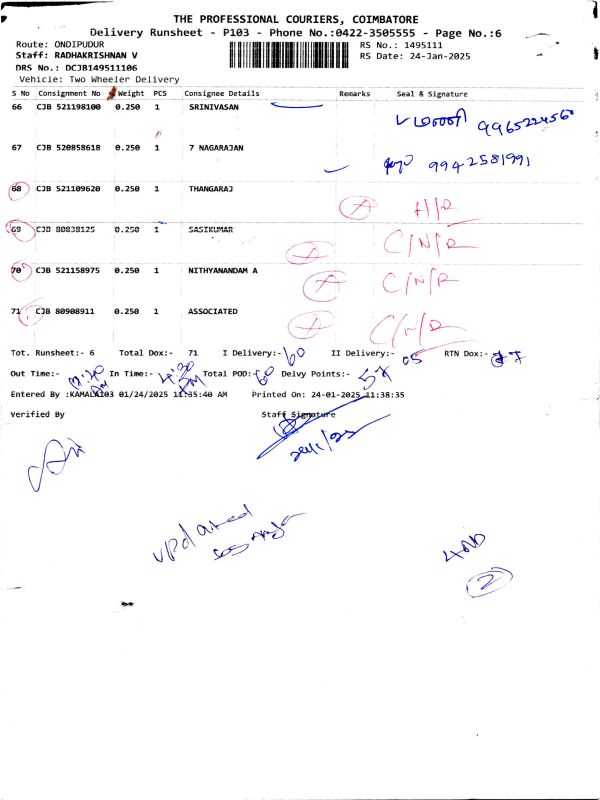 THE PROFESSIONAL COURIERS, COIMBATORE
Delivery Runsheet - P103 - Phone No.:0422-3505555 - Page No.:6
Route: ONDIPUDUR RS No.: 1495111
Staff: RADHAKRISHNAN V RS Date: 24-Jan-2025
DRS No.: DCJB149511106
Vehicle: Two Wheeler Delivery
S No Consignment No Weight PCS Consignee Details Remarks Seal & Signature
66 CJB 521198100 0.250 1 SRINIVASAN
67 CJB 520858618 0.250 1 7 NAGARAJAN 9942581991
68 CJB 521109620 0.250 1 THANGARAJ
69 CJB 80838125 0.250 1 SASIKUMAR C/N/R
70 CJB 521158975 0.250 1 NITHYANANDAM A C/N/R
71 CJB 80908911 0.250 1 ASSOCIATED C/N/R
Tot. Runsheet:- 6 Total Dox:- 71 I Delivery:- 60 II Delivery:- 05 RTN Dox:-
Out Time:- In Time:- 4:30 PM Total POD:- 60 Delvy Points:- 57
Entered By :KAMALA103 01/24/2025 11:35:40 AM Printed On: 24-01-2025 11:38:35
Verified By Staff Signature
updated
2